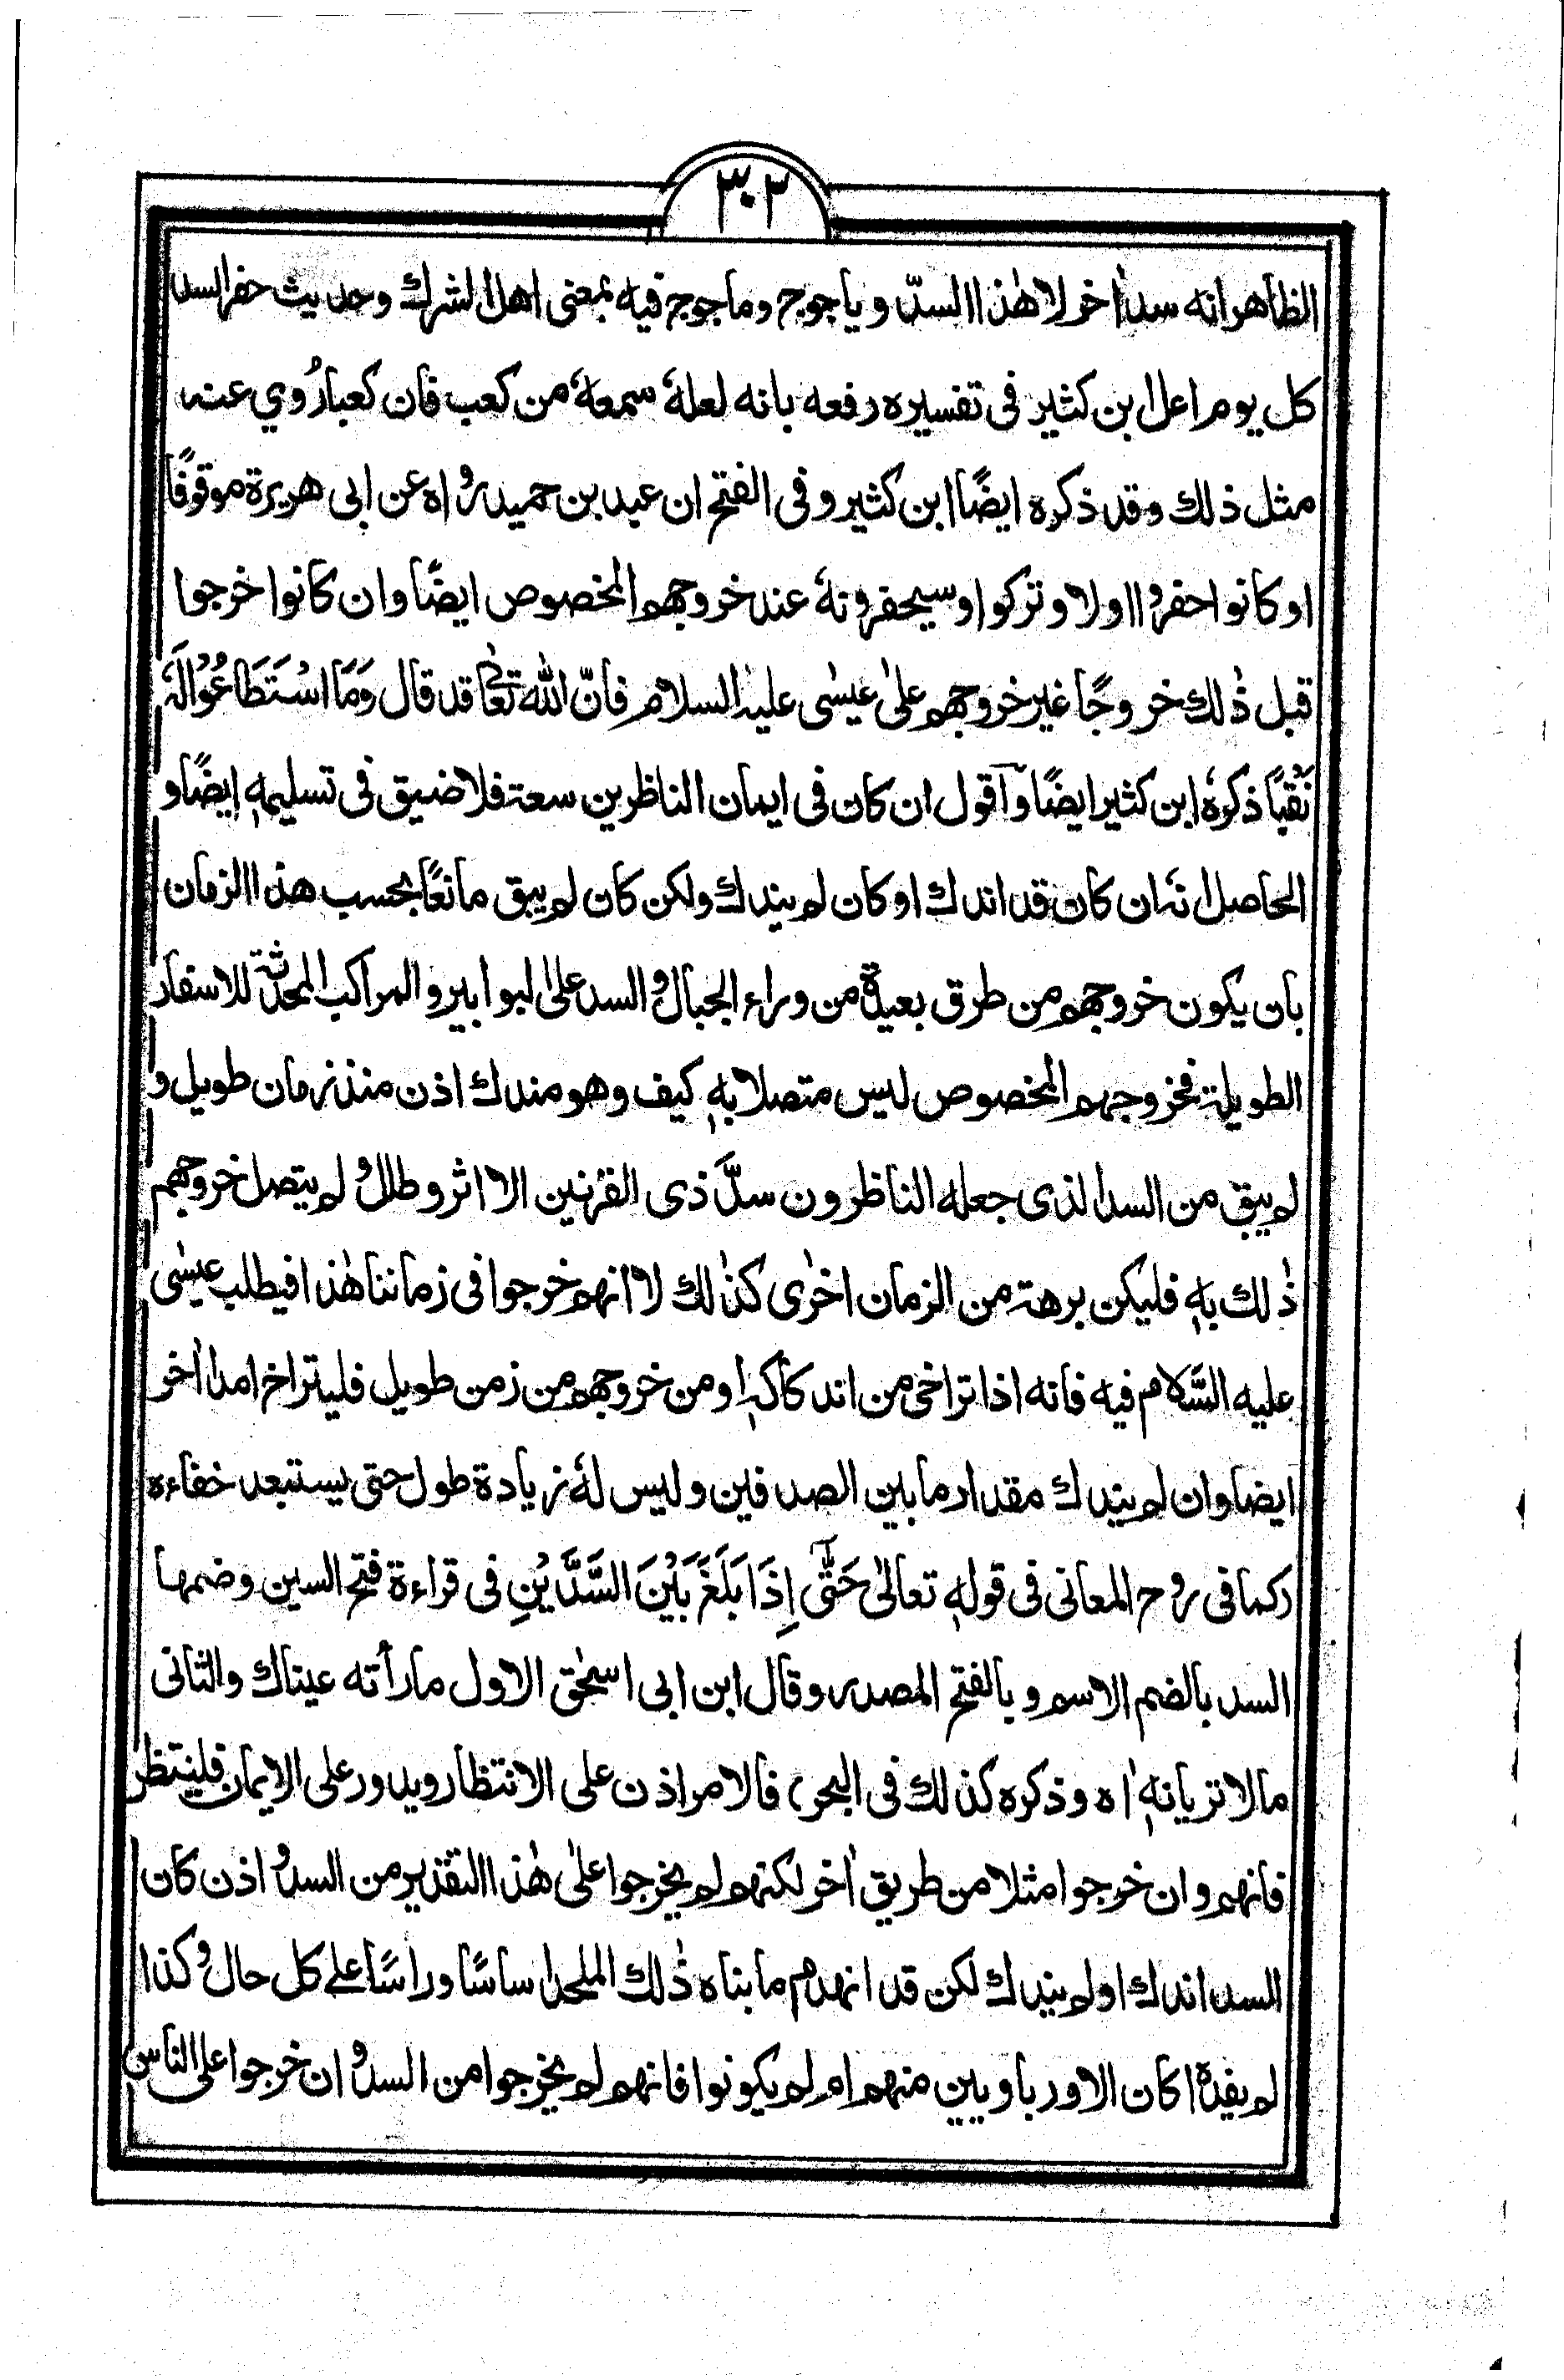 ٣٠٢
الظاهر انه سد اٰخر لا هٰذا السدّ و ياجوج وماجوج فيه بمعنى اهل الشرك وحديث حفر السد
كل يوم اعل ابن كثير فى تفسيره رفعه بانه لعلهٗ سمعهٗ من كعب فان كعبا رُوي عنه
مثل ذلك وقد ذكره ايضًا ابن كثير و فى الفتح ان عبد بن حميد رواه عن ابى هريرة موقوفًا
او كانوا حفروا اولا و تركوا و سيحفرونهٗ عند خروجهم المخصوص ايضًا وان كانوا خرجوا
قبل ذٰلك خروجًا غير خروجهم علىٰ عيسٰى عليه السلام فانّ الله تعالىٰ قد قال وَمَا اسْتَطَاعُوْا لَهٗ
نَقْبًا ذكرهٗ ابن كثير ايضًا وآقول ان كان فى ايمان الناظرين سعة فلا ضيق فى تسليمهٖ ايضًا و
الحاصل انهٗ ان كان قد اندك او كان لم يندك ولكن كان لم يبق مانعًا بحسب هذا الزمان
بان يكون خروجهم من طرق بعيدة من وراء الجبال و السد على البوابير و المراكب المحدثة للاسفار
الطويلة فخروجهم المخصوص ليس متصلا بهٖ كيف وهو مندك اذن منذ زمان طويل و
لم يبق من السد الذى جعله الناظرون سدَّ ذى القرنين الا اثر و طلل و لم يتصل خروجهم
ذٰلك بهٖ فليكن برهة من الزمان اخرٰى كذٰلك لا انهم خرجوا فى زماننا هٰذا فيطلب عيسٰى
عليه السَّلام فيه فانه اذا تراخى من اندكاكهٖ او من خروجهم من زمن طويل فليتراخ امدا اٰخر
ايضا وان لم يندك مقدار ما بين الصدفين و ليس لهٗ زيادة طول حتى يستبعد خفاءه
(كما فى روح المعانى فى قولهٖ تعالىٰ حَتّٰٓى اِذَا بَلَغَ بَيْنَ السَّدَّيْنِ فى قراءة فتح السين وضمها
السد بالضم الاسم و بالفتح المصدر و قال ابن ابى اسحٰق الاول ما رأته عيناك والثانى
مالا تريانهٖ اٰه و ذكره كذلك فى البحر) فالامر اذن على الانتظار ويدور على الايمان فلينتظر
فانهم و ان خرجوا مثلا من طريق اٰخر لكنهم لم يخرجوا علىٰ هٰذا التقدير من السد و اذن كان
السد اندك او لم يندك لكن قد انهدم ما بناه ذٰلك الملحد اساسًا و راسًا علے كل حال و كذا
لم يفده اكان الاورباويين منهم ام لم يكونوا فانهم لم يخرجوا من السد و ان خرجوا على الناس